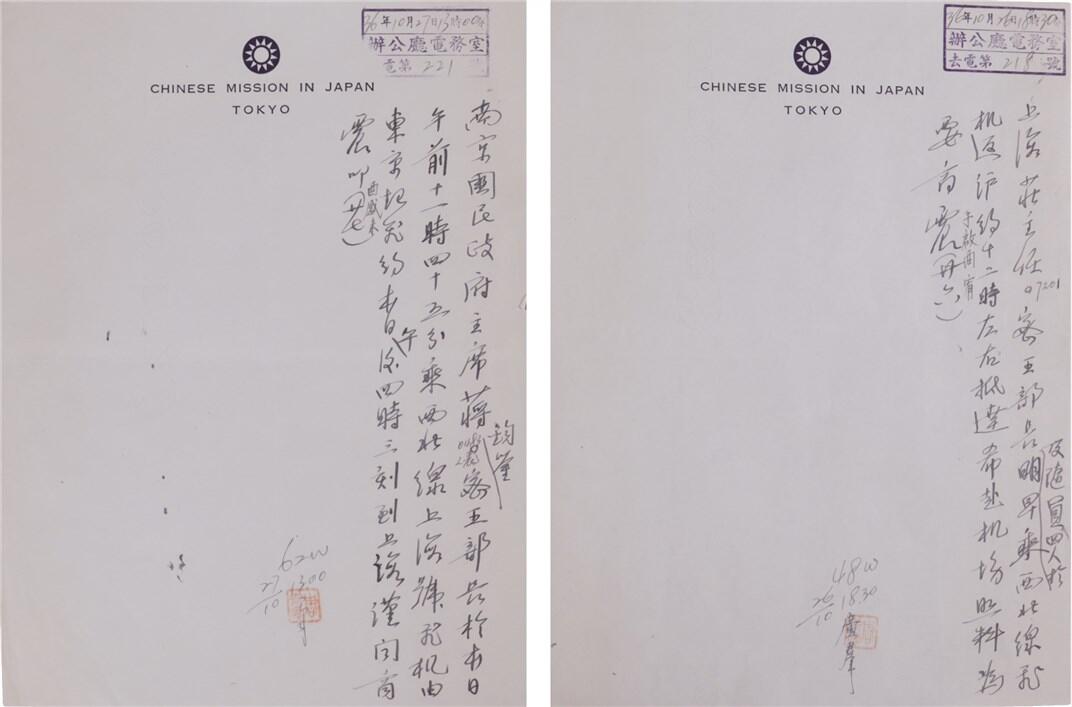 36年10月27日13時00分
辦公廳電務室
電第221號
CHINESE MISSION IN JAPAN
TOKYO
南京國民政府主席蔣鈞鑒密王部長於本日
午前十一時四十五分乘西北線上海號飛机由
東京起飛約本日午後四時三刻到上海謹聞商
震叩
62W
13.00
27/10
36年10月26日18時30分
辦公廳電務室
去電第218號
CHINESE MISSION IN JAPAN
TOKYO
上海莊主任07201密王部長及隨員四人於明早乘西北線飛
机返沪約十二時左右抵達希赴机場照料為
要商震
48W
18.30
26/10